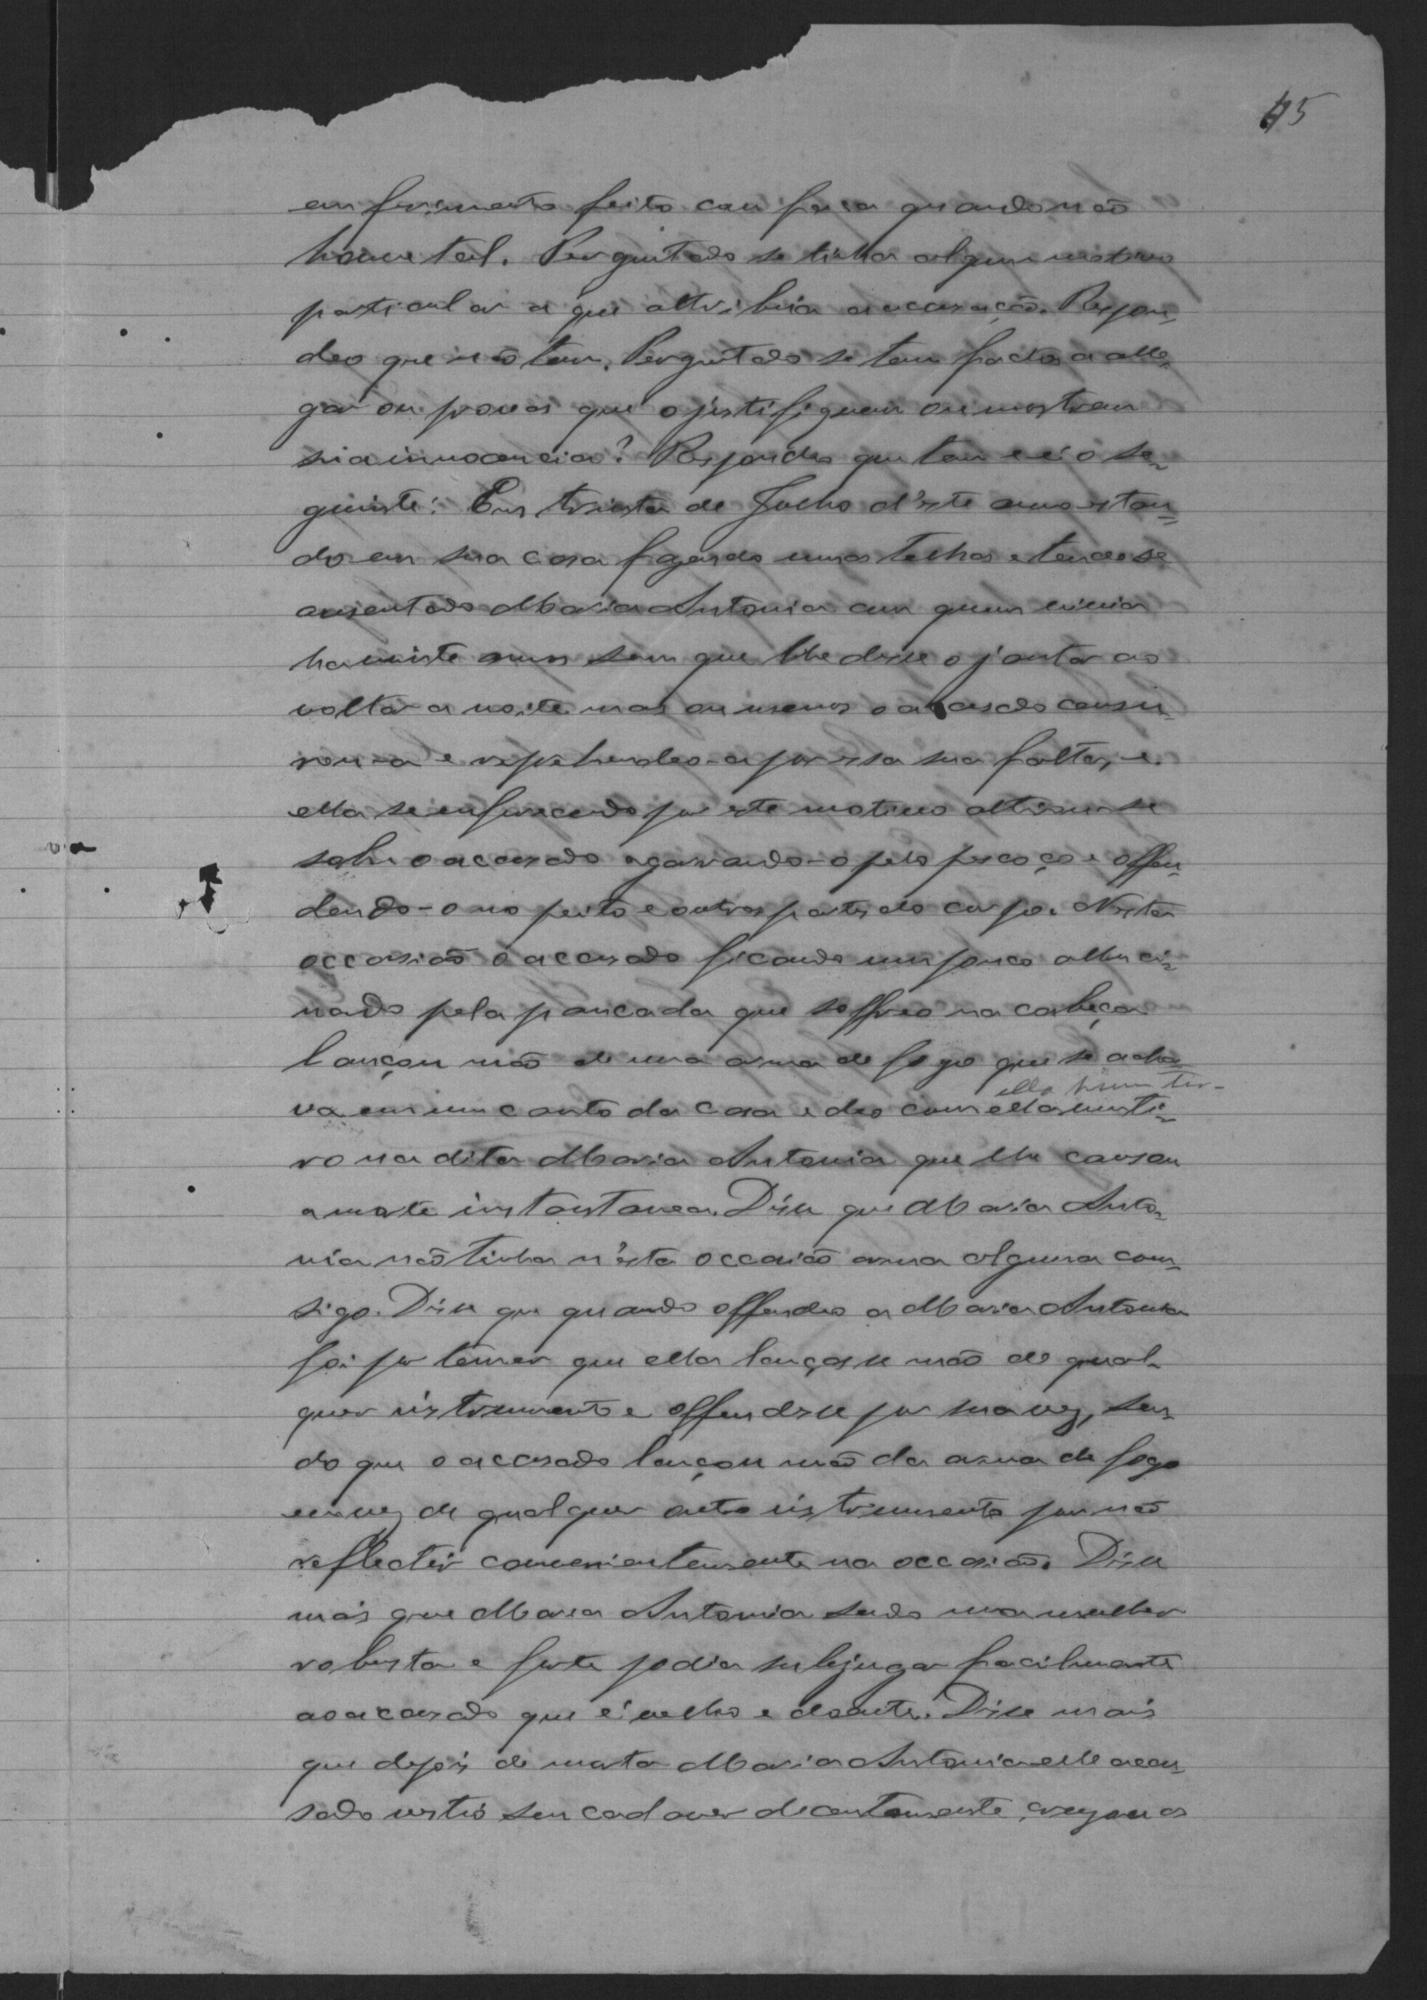 45
em ferimento feito com faca quando não
houve tal. Perguntado se tinha algum motivo
particular a que attribuia a accusação. Respon-
deo que não tem. Perguntado se tem factos a alle-
gar ou provas que o justifiquem ou mostrem
sua innocencia? Respondeo que tem e é o se-
guinte: Em trinta de Julho d'este anno estan-
do em sua casa fazendo umas telhas e tendo se
ausentado Maria Antonia com quem vivia
ha vinte annos sem que lhe désse o jantar ao
voltar a noite mas ou menos o accusado censu-
rou-a e reprehendeo-a por essa sua falta, e
ella se enfurecendo por este motivo attirou-se
sobre o accusado agarrando-o pelo pescoço e offen-
dendo-o no peito e outras partes do corpo. N'esta
occasião o accusado ficando um pouco alluci-
nado pela pancada que soffreo na cabeça
lançou mão de uma arma de fogo que se acha-
va em um canto da casa e deo com ella um ti-
ella hum tir-
ro na dita Maria Antonia que lhe causou
a morte instantanea. Disse que Maria Anto-
nia não tinha n'esta occasião arma alguma com-
sigo. Disse que quando offendeo a Maria Antonia
foi por temer que ella lançasse mão de qual-
quer instrumento e offendesse por sua vez, sen-
do que o accusado lançou mão da arma de fogo
em vez de qualquer outro instrumento por não
reflectir convenientemente na occasião. Disse
mais que Maria Antonia sendo uma mulher
robusta e forte podia subjugar facilmente
ao accusado que é velho e doente. Disse mais
que depois de morta Maria Antonia elle accu-
sado vestio seu cadaver decentemente, arranjou os